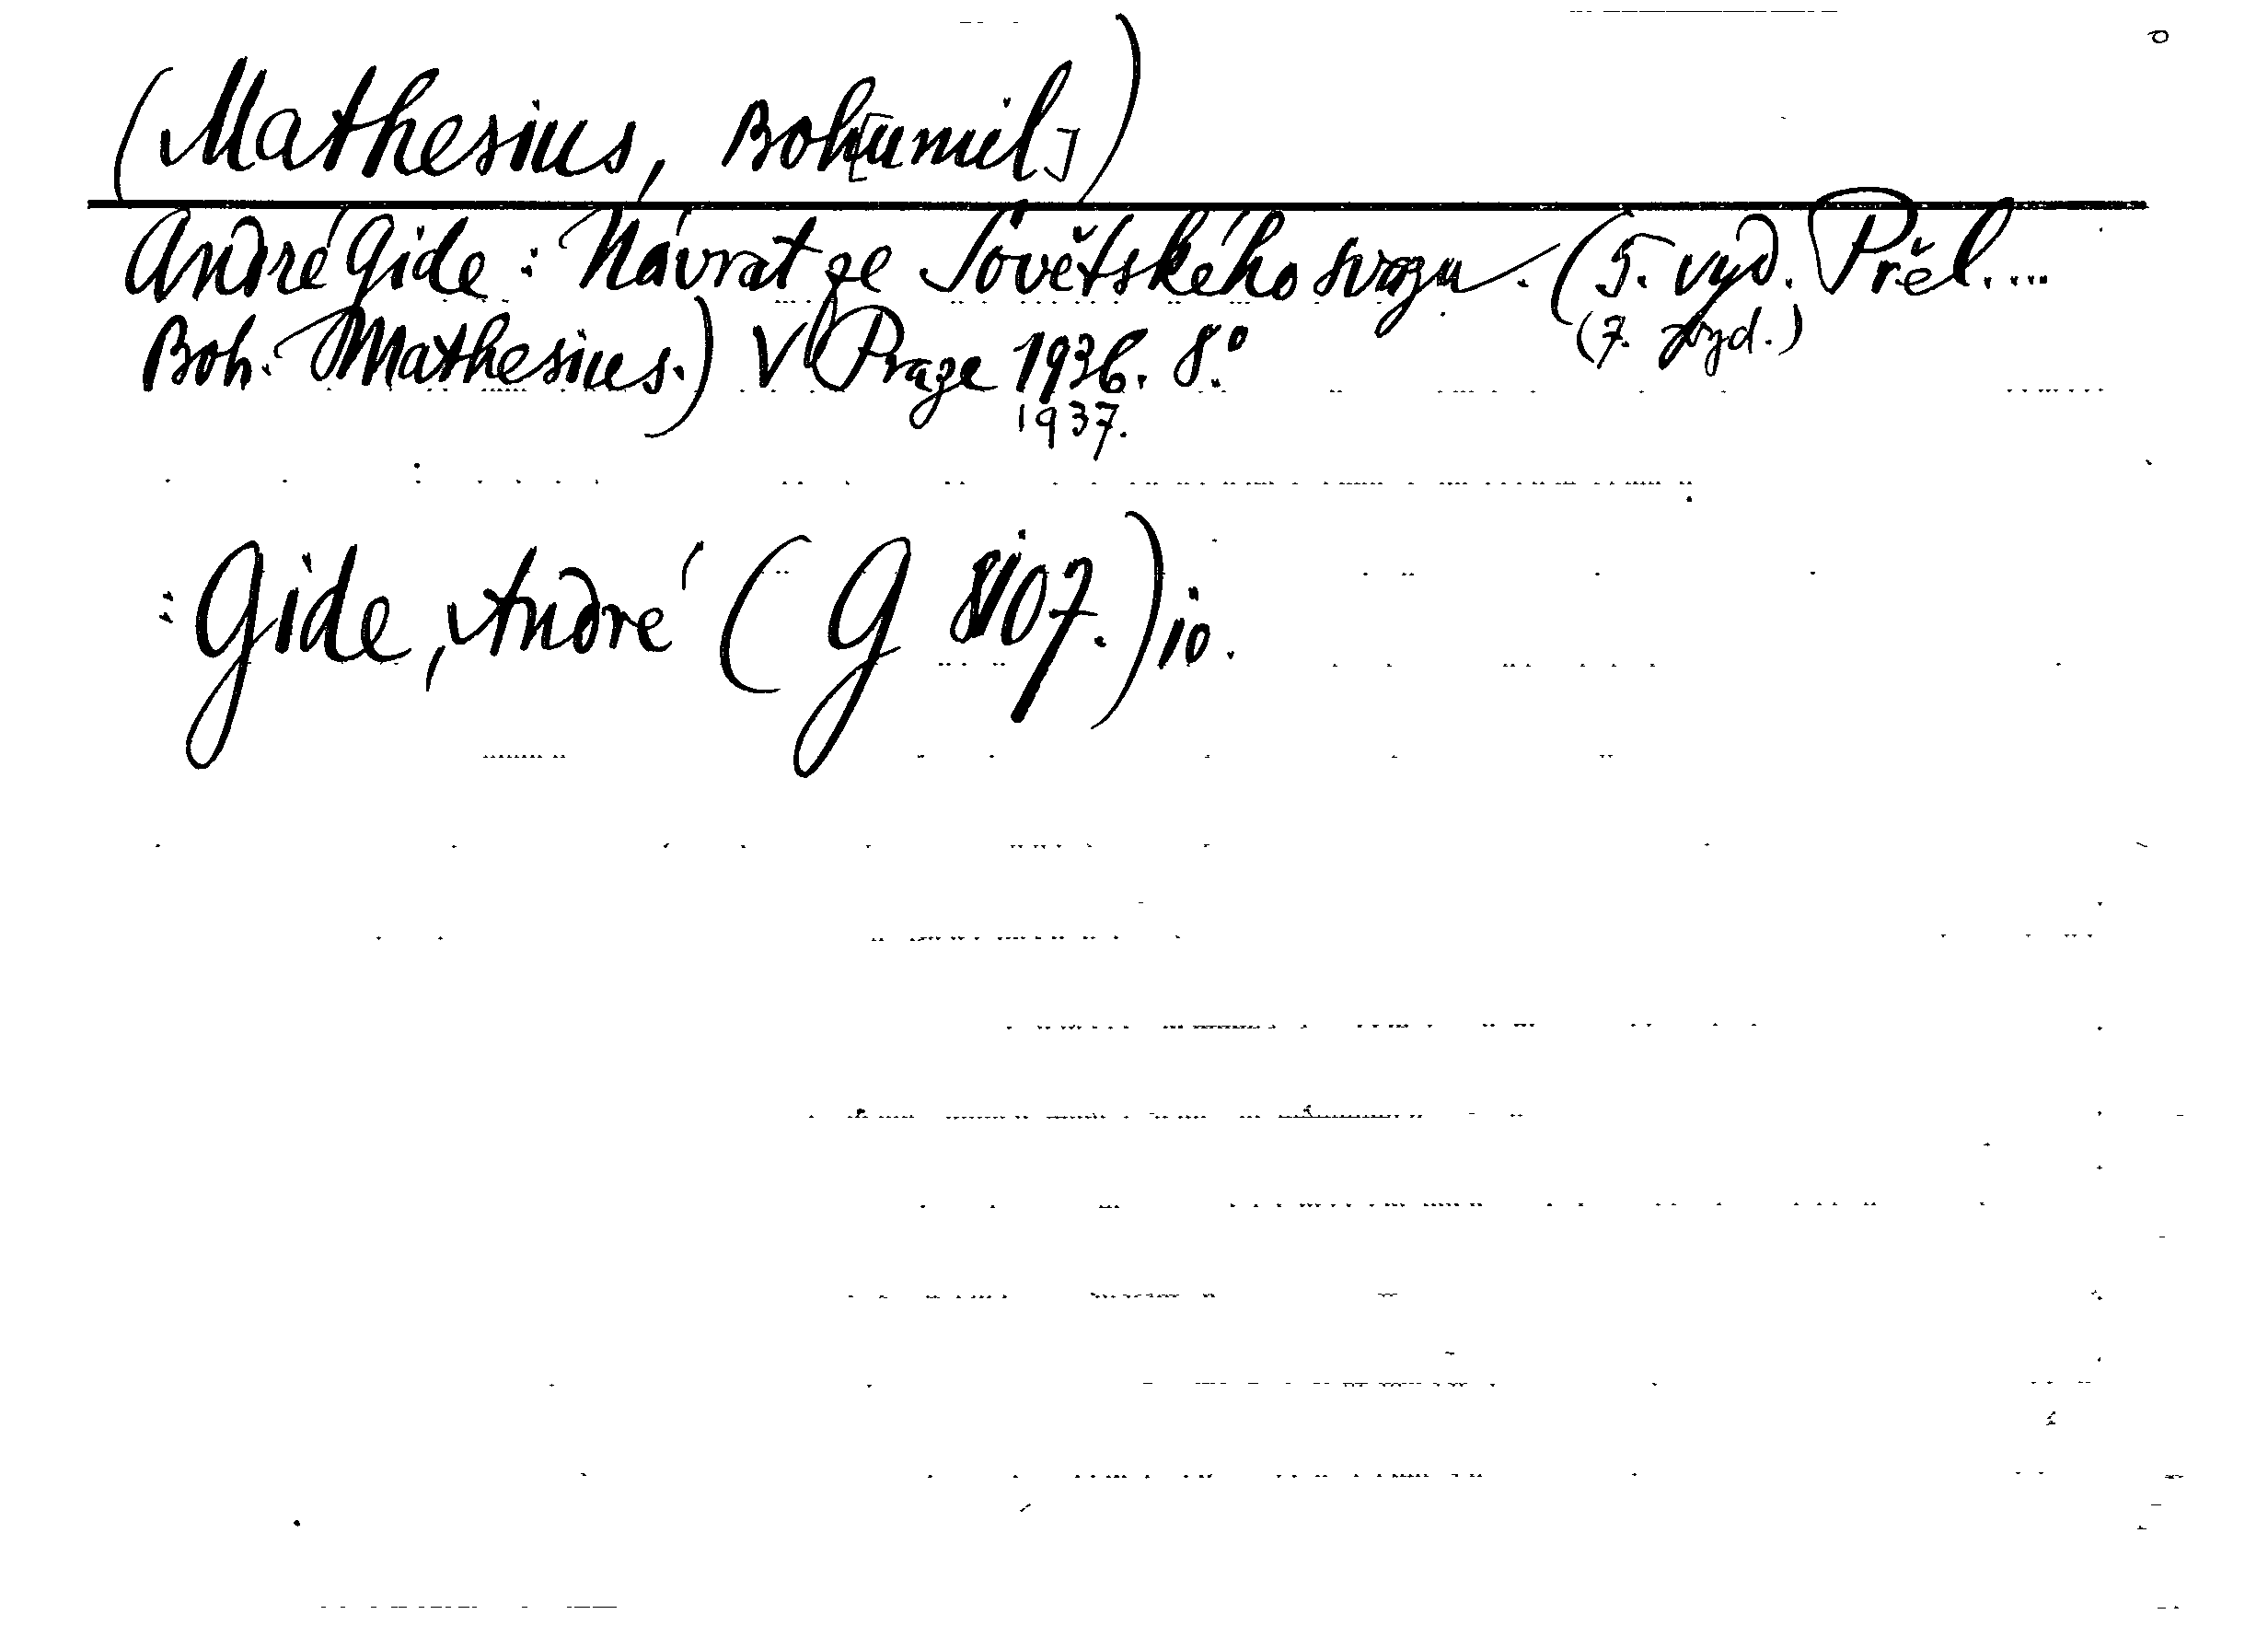 (Mathesius, Boh[umil])
André Gide: Návrat ze Sovětského svazu. (5. vyd. Přel....
(7. vyd.)
Boh. Mathesius.) V Praze 1936. 8.°
1937.
: Gide, André (G 8107.) io.